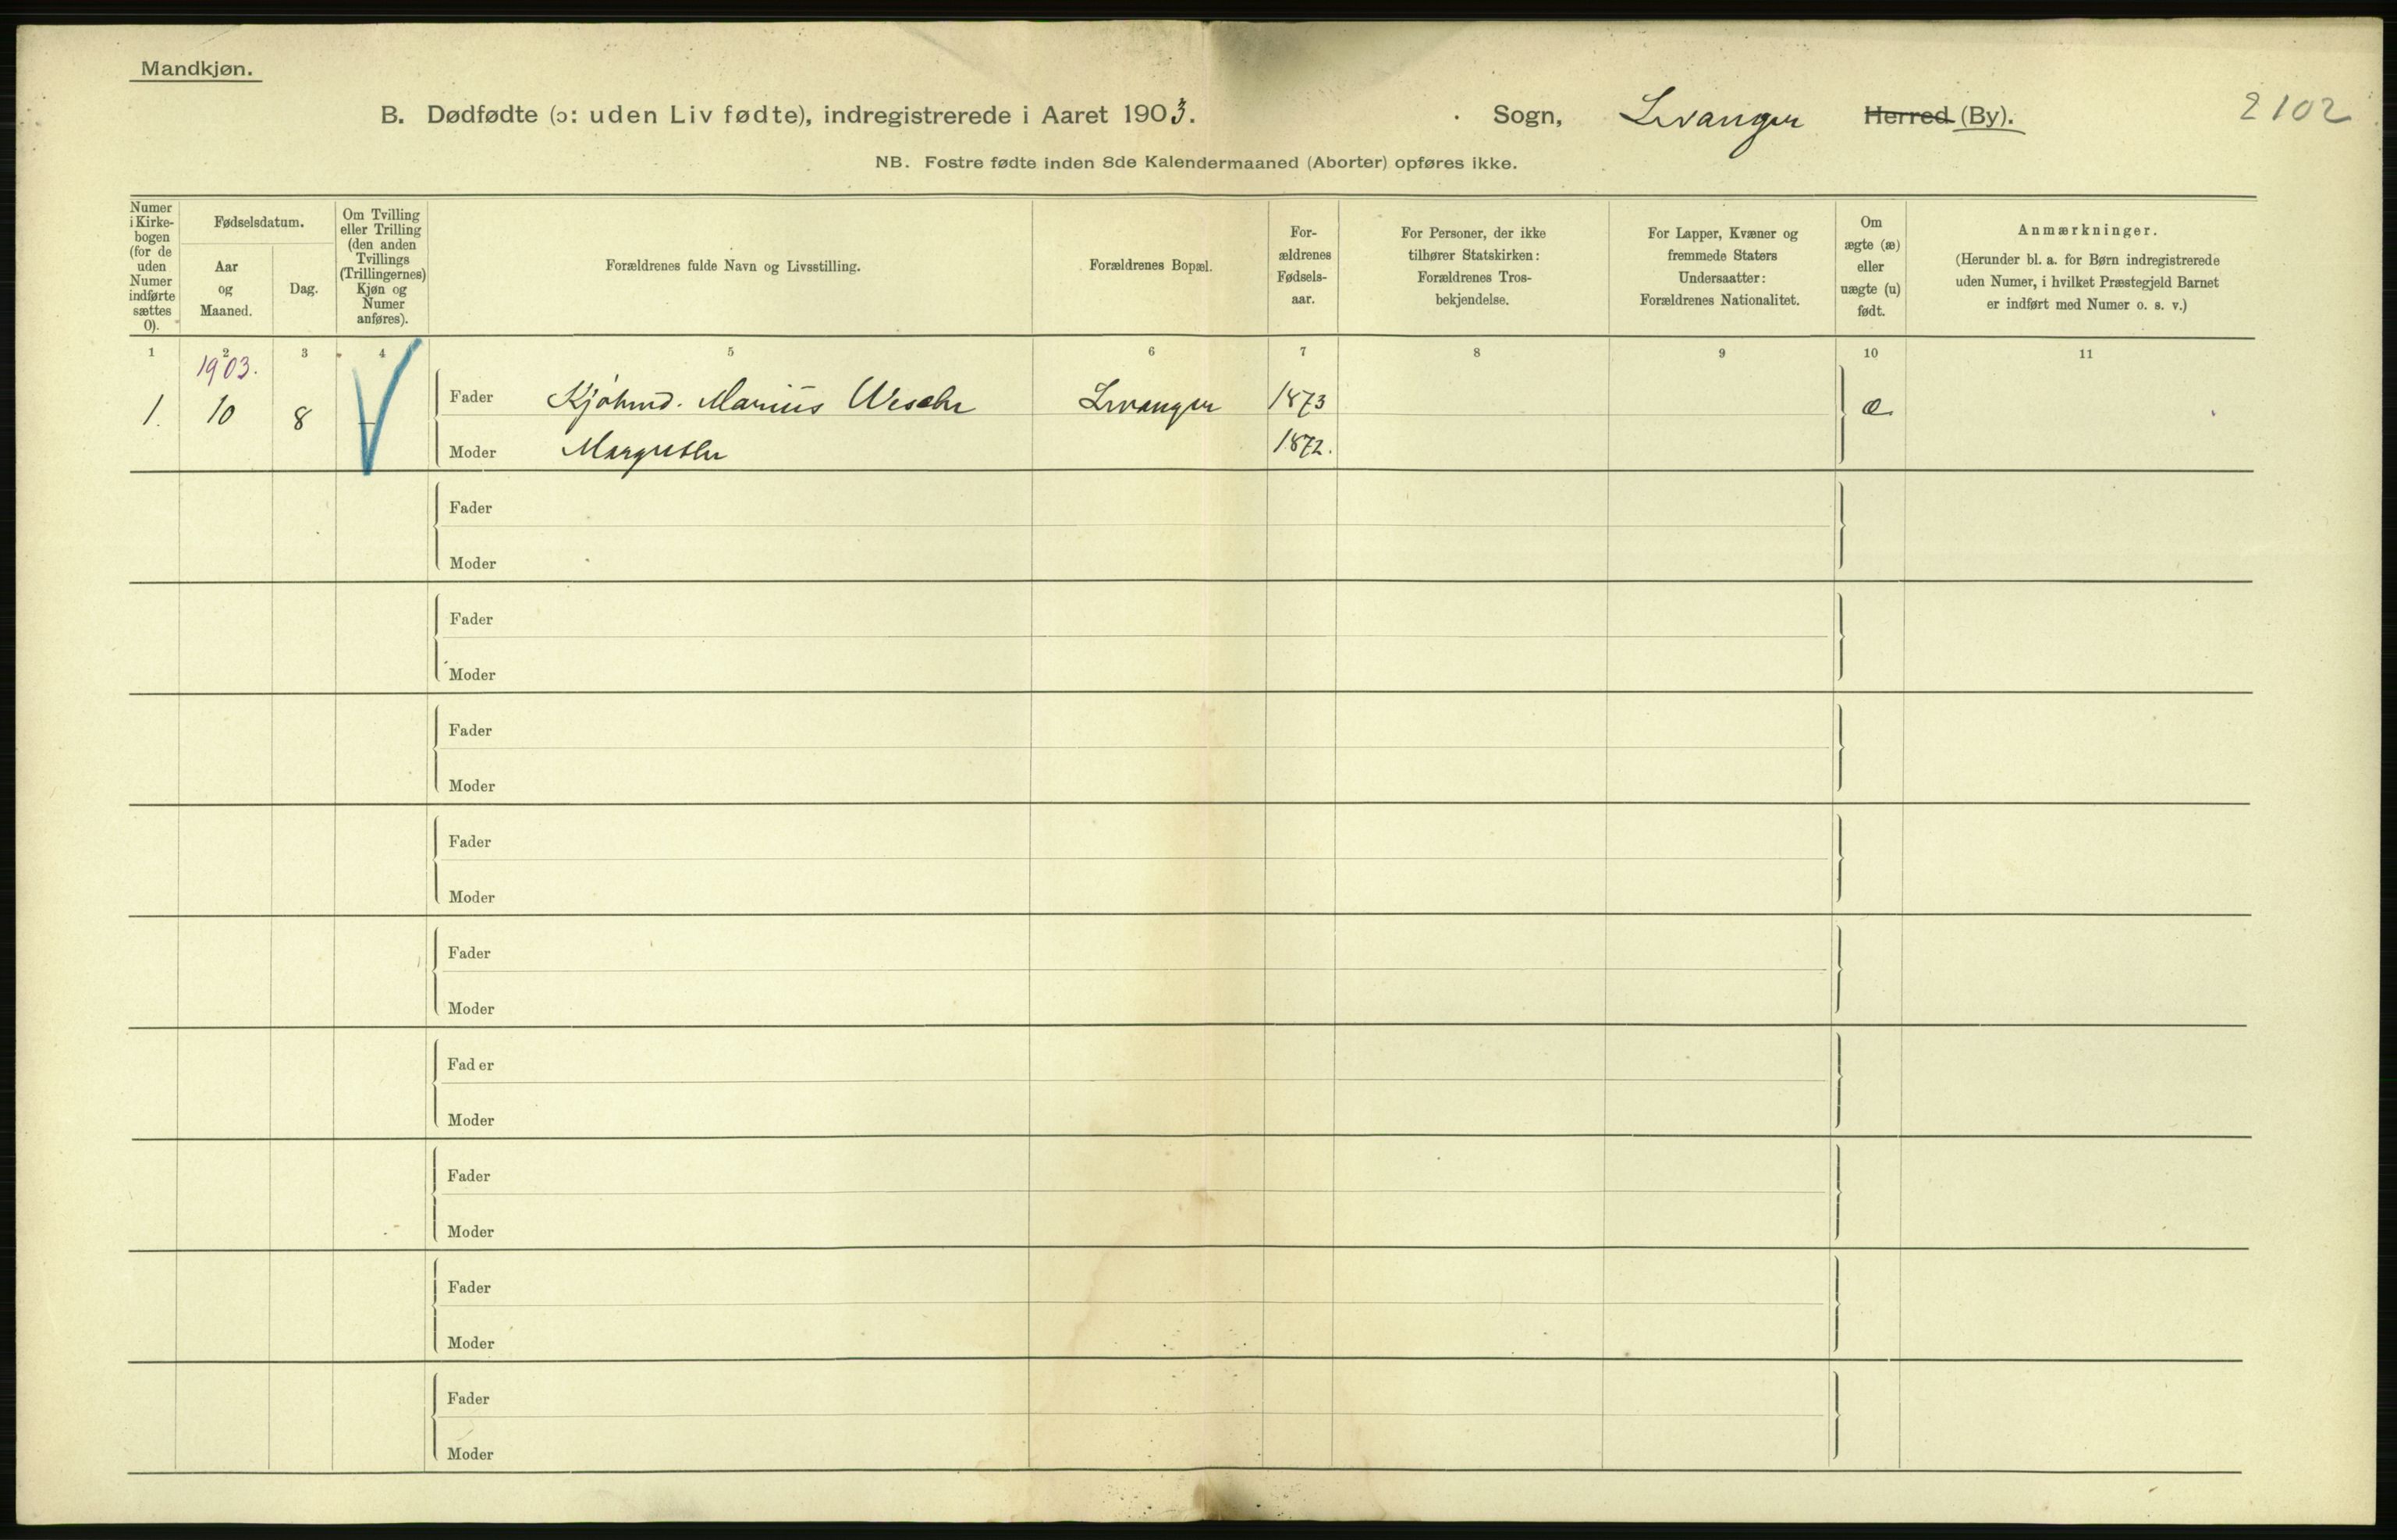 Mandkjøn.
B. Dødfødte (ɔ: uden Liv fødte), indregistrerede i Aaret 1903. Sogn, Levanger Herred (By). 2102
NB. Fostre fødte inden 8de Kalendermaaned (Aborter) opføres ikke.
Numer
i Kirke-
bogen
(for de
uden
Numer
indførte
sættes
0).
Fødselsdatum.
Aar
og
Maaned.
Dag.
Om Tvilling
eller Trilling
(den anden
Tvillings
(Trillingernes)
Kjøn og
Numer
anføres).
Forældrenes fulde Navn og Livsstilling.
Forældrenes Bopæl.
For-
ældrenes
Fødsels-
aar.
For Personer, der ikke
tilhører Statskirken:
Forældrenes Tros-
bekjendelse.
For Lapper, Kvæner og
fremmede Staters
Undersaatter:
Forældrenes Nationalitet.
Om
ægte (æ)
eller
uægte (u)
født.
Anmærkninger.
(Herunder bl. a. for Børn indregistrerede
uden Numer, i hvilket Præstegjeld Barnet
er indført med Numer o. s. v.)
1 2 3 4 5 6 7 8 9 10 11
1903.
1. 10 8 Fader Kjøbmd. Marius Levanger 1873 æ
Moder Margrethe 1872.
Fader
Moder
Fader
Moder
Fader
Moder
Fader
Moder
Fader
Moder
Fader
Moder
Fader
Moder
Fader
Moder
Fader
Moder